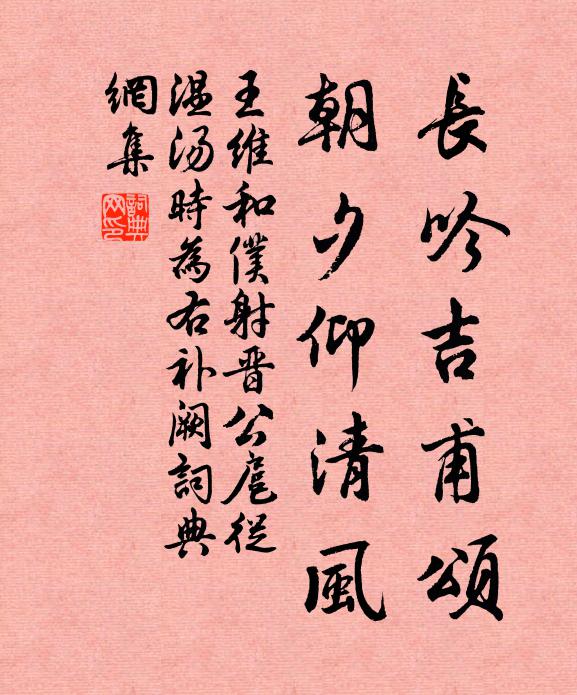 長吟吉甫頌
朝夕仰清風
王維和僕射晋公扈從
温汤時為右补阙詞典
網集
詞典網印